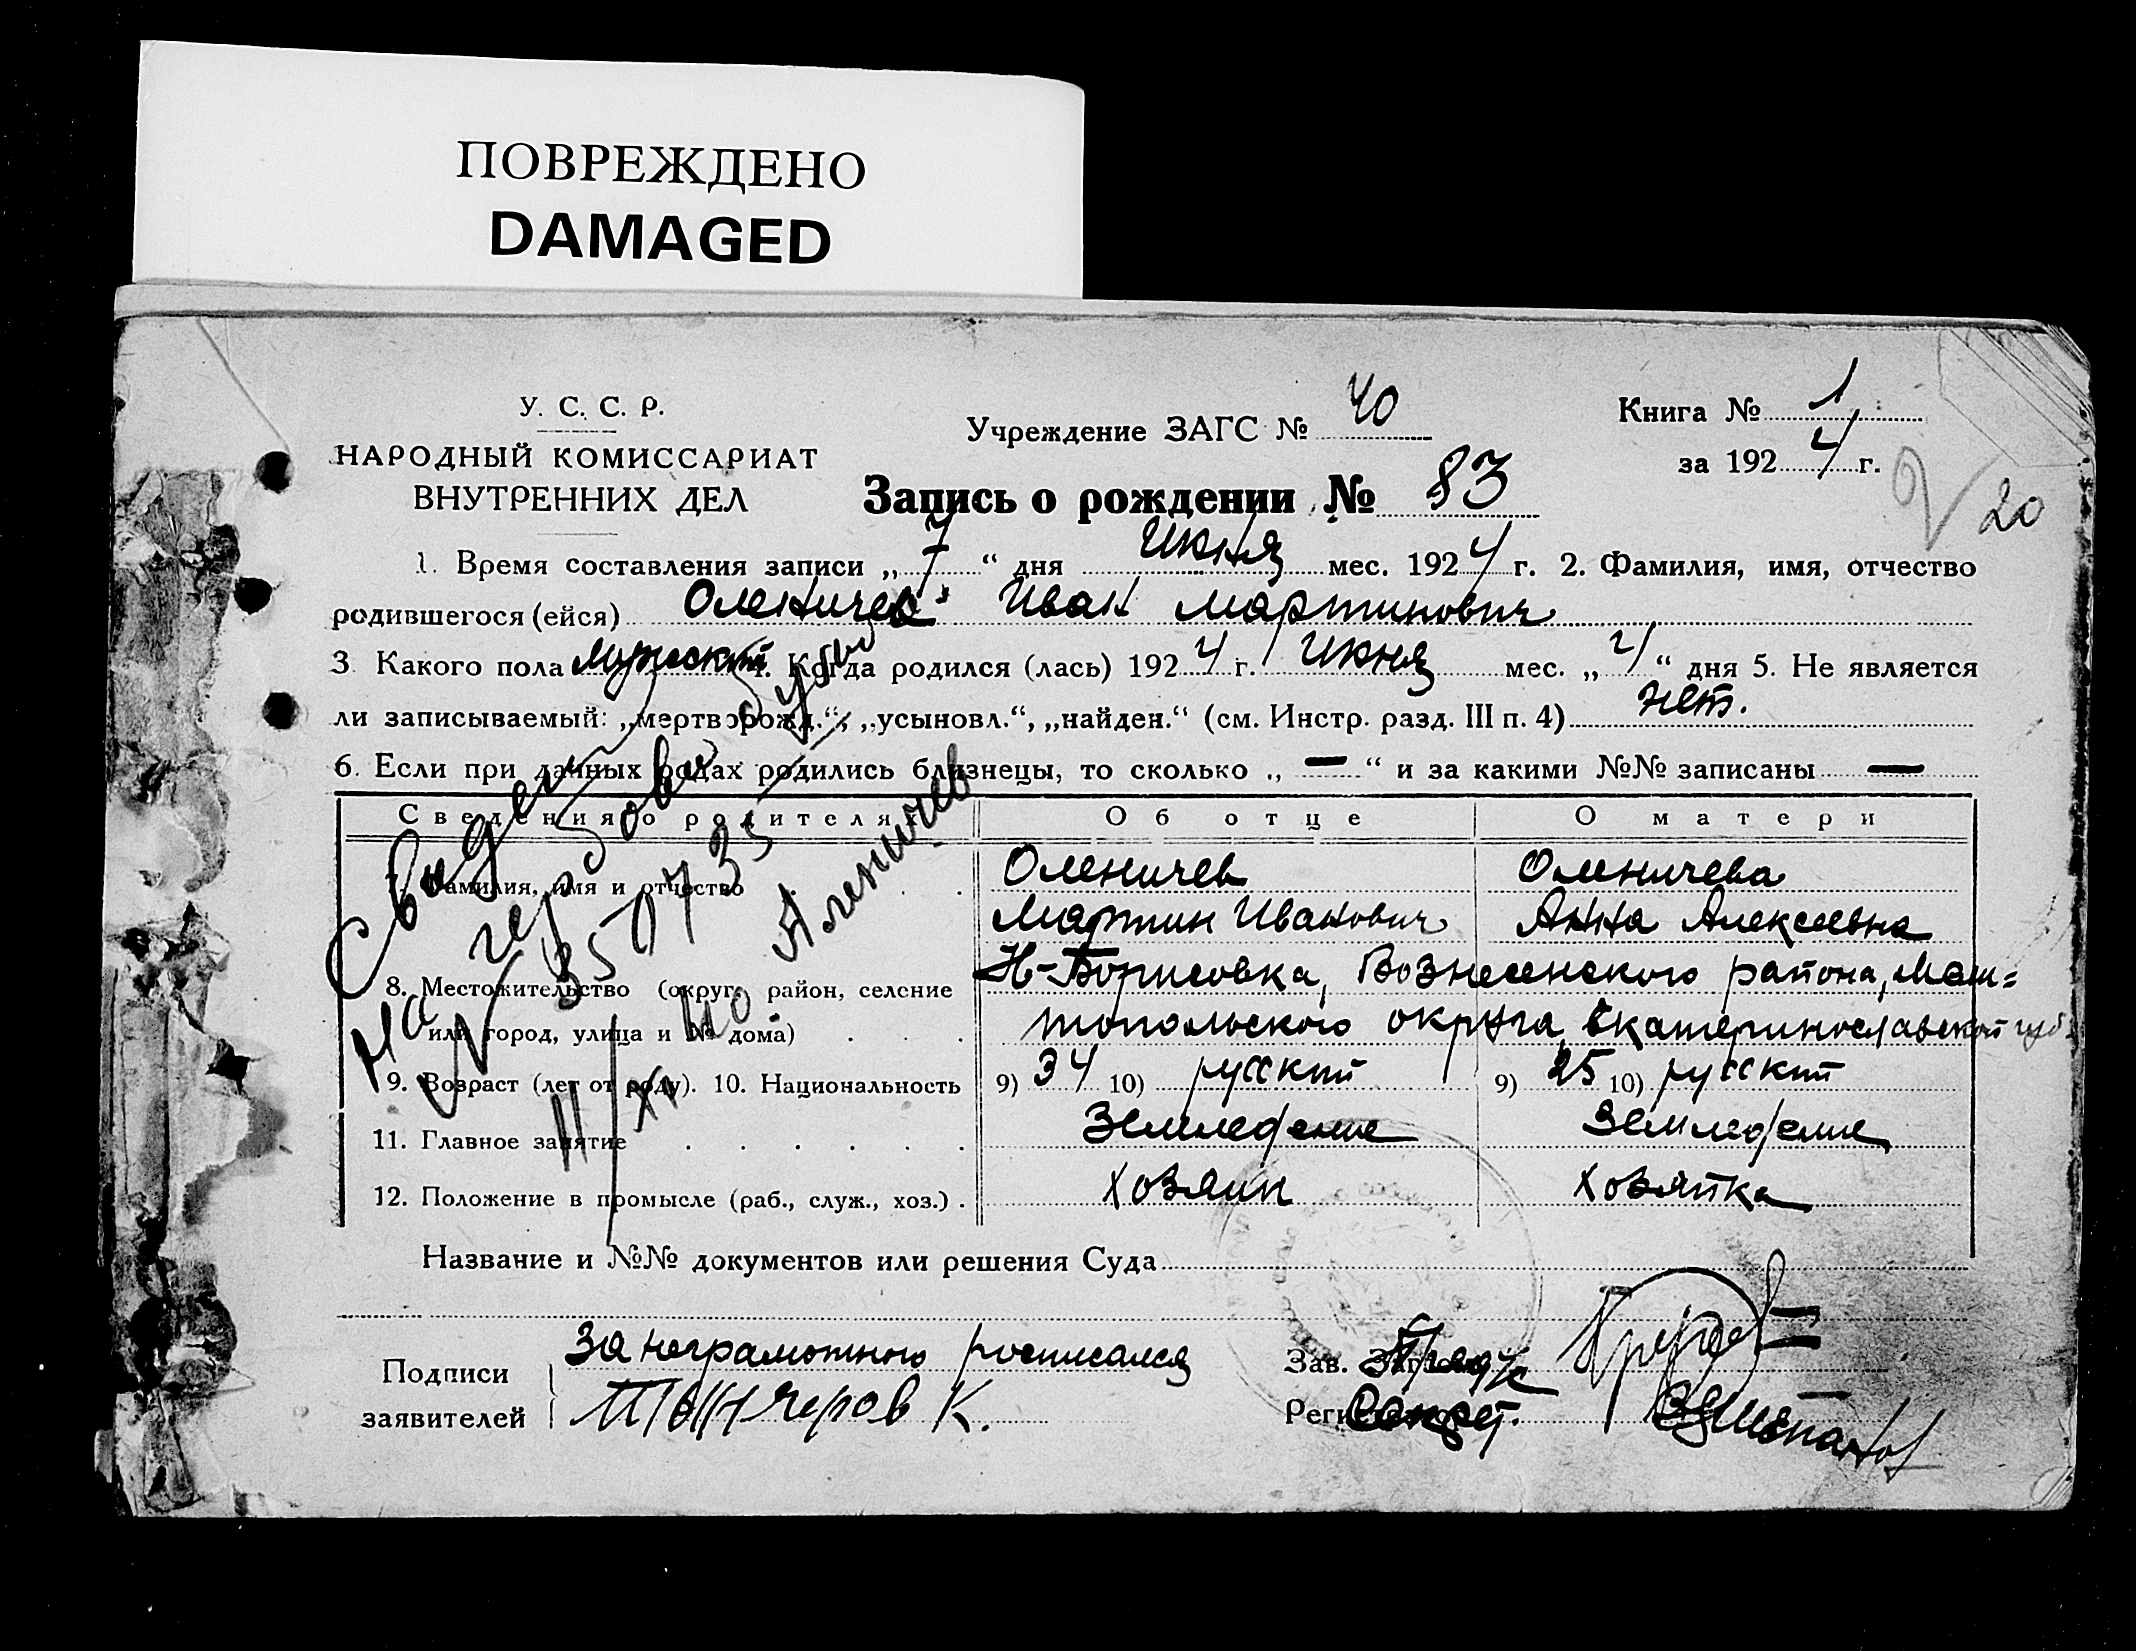 ПОВРЕЖДЕНО
DAMAGED
У. С. С. Р.
НАРОДНЫЙ КОМИССАРИАТ
ВНУТРЕННИХ ДЕЛ
Учреждение ЗАГС № 40
Книга № 1
за 1924 г.
Запись о рождении № 83
20
1. Время составления записи „7“ дня Июня мес. 1924 г. 2. Фамилия, имя, отчество
родившегося (ейся) Оленичев Иван Мартинович
3. Какого пола мужской 4. Когда родился (лась) 1924 г. Июня мес. „4“ дня 5. Не является
ли записываемый: „мертворожд.“, „усыновл.“, „найден.“ (см. Инстр. разд. III п. 4) нет.
6. Если при данных родах родились близнецы, то сколько „—“ и за какими №№ записаны —
Сведения о родителях Об отце О матери
7. Фамилия, имя и отчество Оленичев Оленичева
Мартин Иванович Анна Алексеевна
8. Местожительство (округ, район, селение Н-Борисовка, Вознесенского района, Мели=
или город, улица и № дома) топольского округа, Екатеринославской губ.
9. Возраст (лет от роду). 10. Национальность 9) 34 10) русский 9) 25 10) русский
11. Главное занятие Земледелие Земледелие
12. Положение в промысле (раб., служ., хоз.) хозяин хозяйка
Название и №№ документов или решения Суда
Подписи заявителей
За неграмотного росписался
К.
Зав.
Секрет.
Аленичев